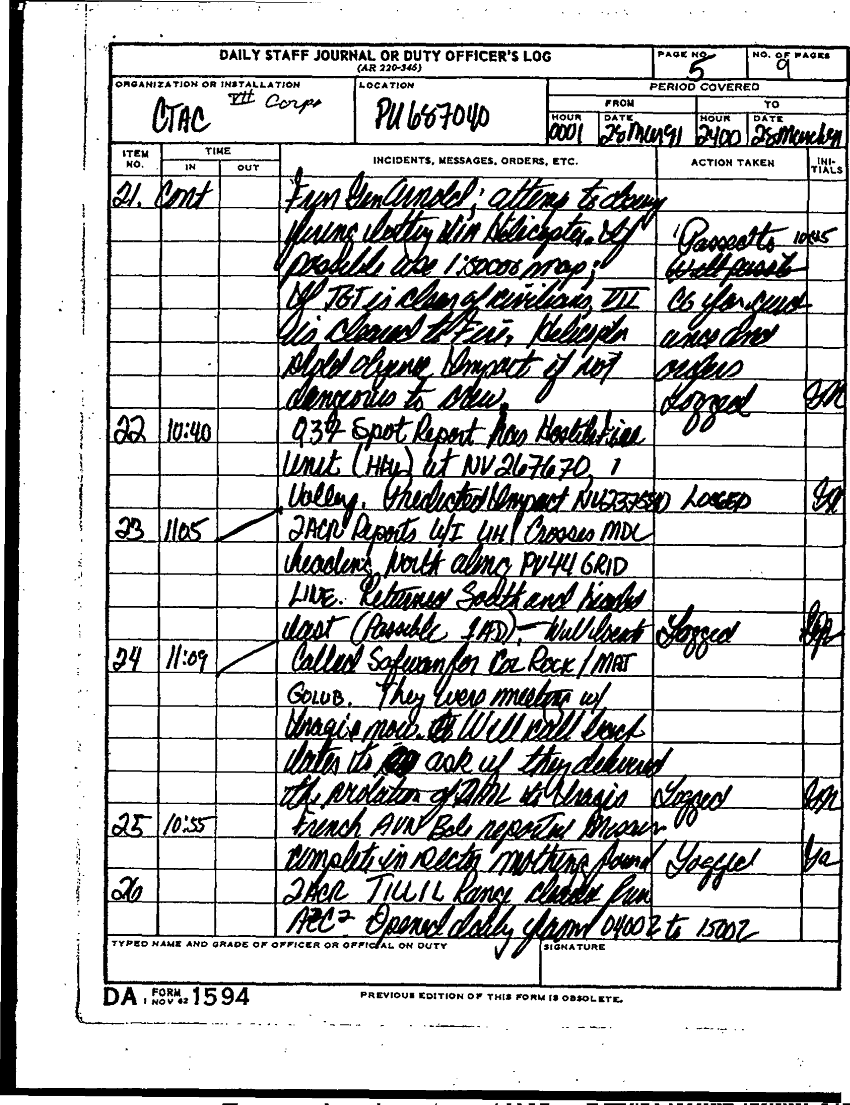 DAILY STAFF JOURNAL OR DUTY OFFICER'S LOG
(AR 220-346)
PAGE NO.
5
NO. OF PAGES
9
ORGANIZATION OR INSTALLATION
CTAC VII Corps
LOCATION
PU687040
PERIOD COVERED
FROM
TO
HOUR
0001
DATE
28Mar91
HOUR
2400
DATE
28March91
ITEM NO.
TIME
IN
OUT
INCIDENTS, MESSAGES, ORDERS, ETC.
ACTION TAKEN
INI-
TIALS
21. Cont From Gen Arnold;
firing Helicopter. If Passed to 1045
possible use 1:50000 map;
If TGT is clear of civilians, VII CG for guid
is cleared to Fire. Helicopter ance and
Shold observe Impact if not orders
dangerous to crew. Logged
22 10:40 Spot Report has Hostile Fire
Unit (HFU) at NV267670, 1
Volley. Predicted Impact LOGGED
23 1105 2ACR Reports UH1 Crosses MDL
heading North along PV44 GRID
LINE. Returned South and heads
East (Possible 1AD) - Logged
24 11:09 Called Safwan for Col Rock / MAJ
GOLUB. They were meeting w/
Iraqis now. Will call back
later to ask if they delivered
the violation of to Iraqis Logged
25 10:55 French AVN Bde reported Mission
complete in Sector nothing found Logged
26 2ACR Range
Opened daily from 0400Z to 1500Z
TYPED NAME AND GRADE OF OFFICER OR OFFICIAL ON DUTY
SIGNATURE
DA FORM 1594
1 NOV 62
PREVIOUS EDITION OF THIS FORM IS OBSOLETE.